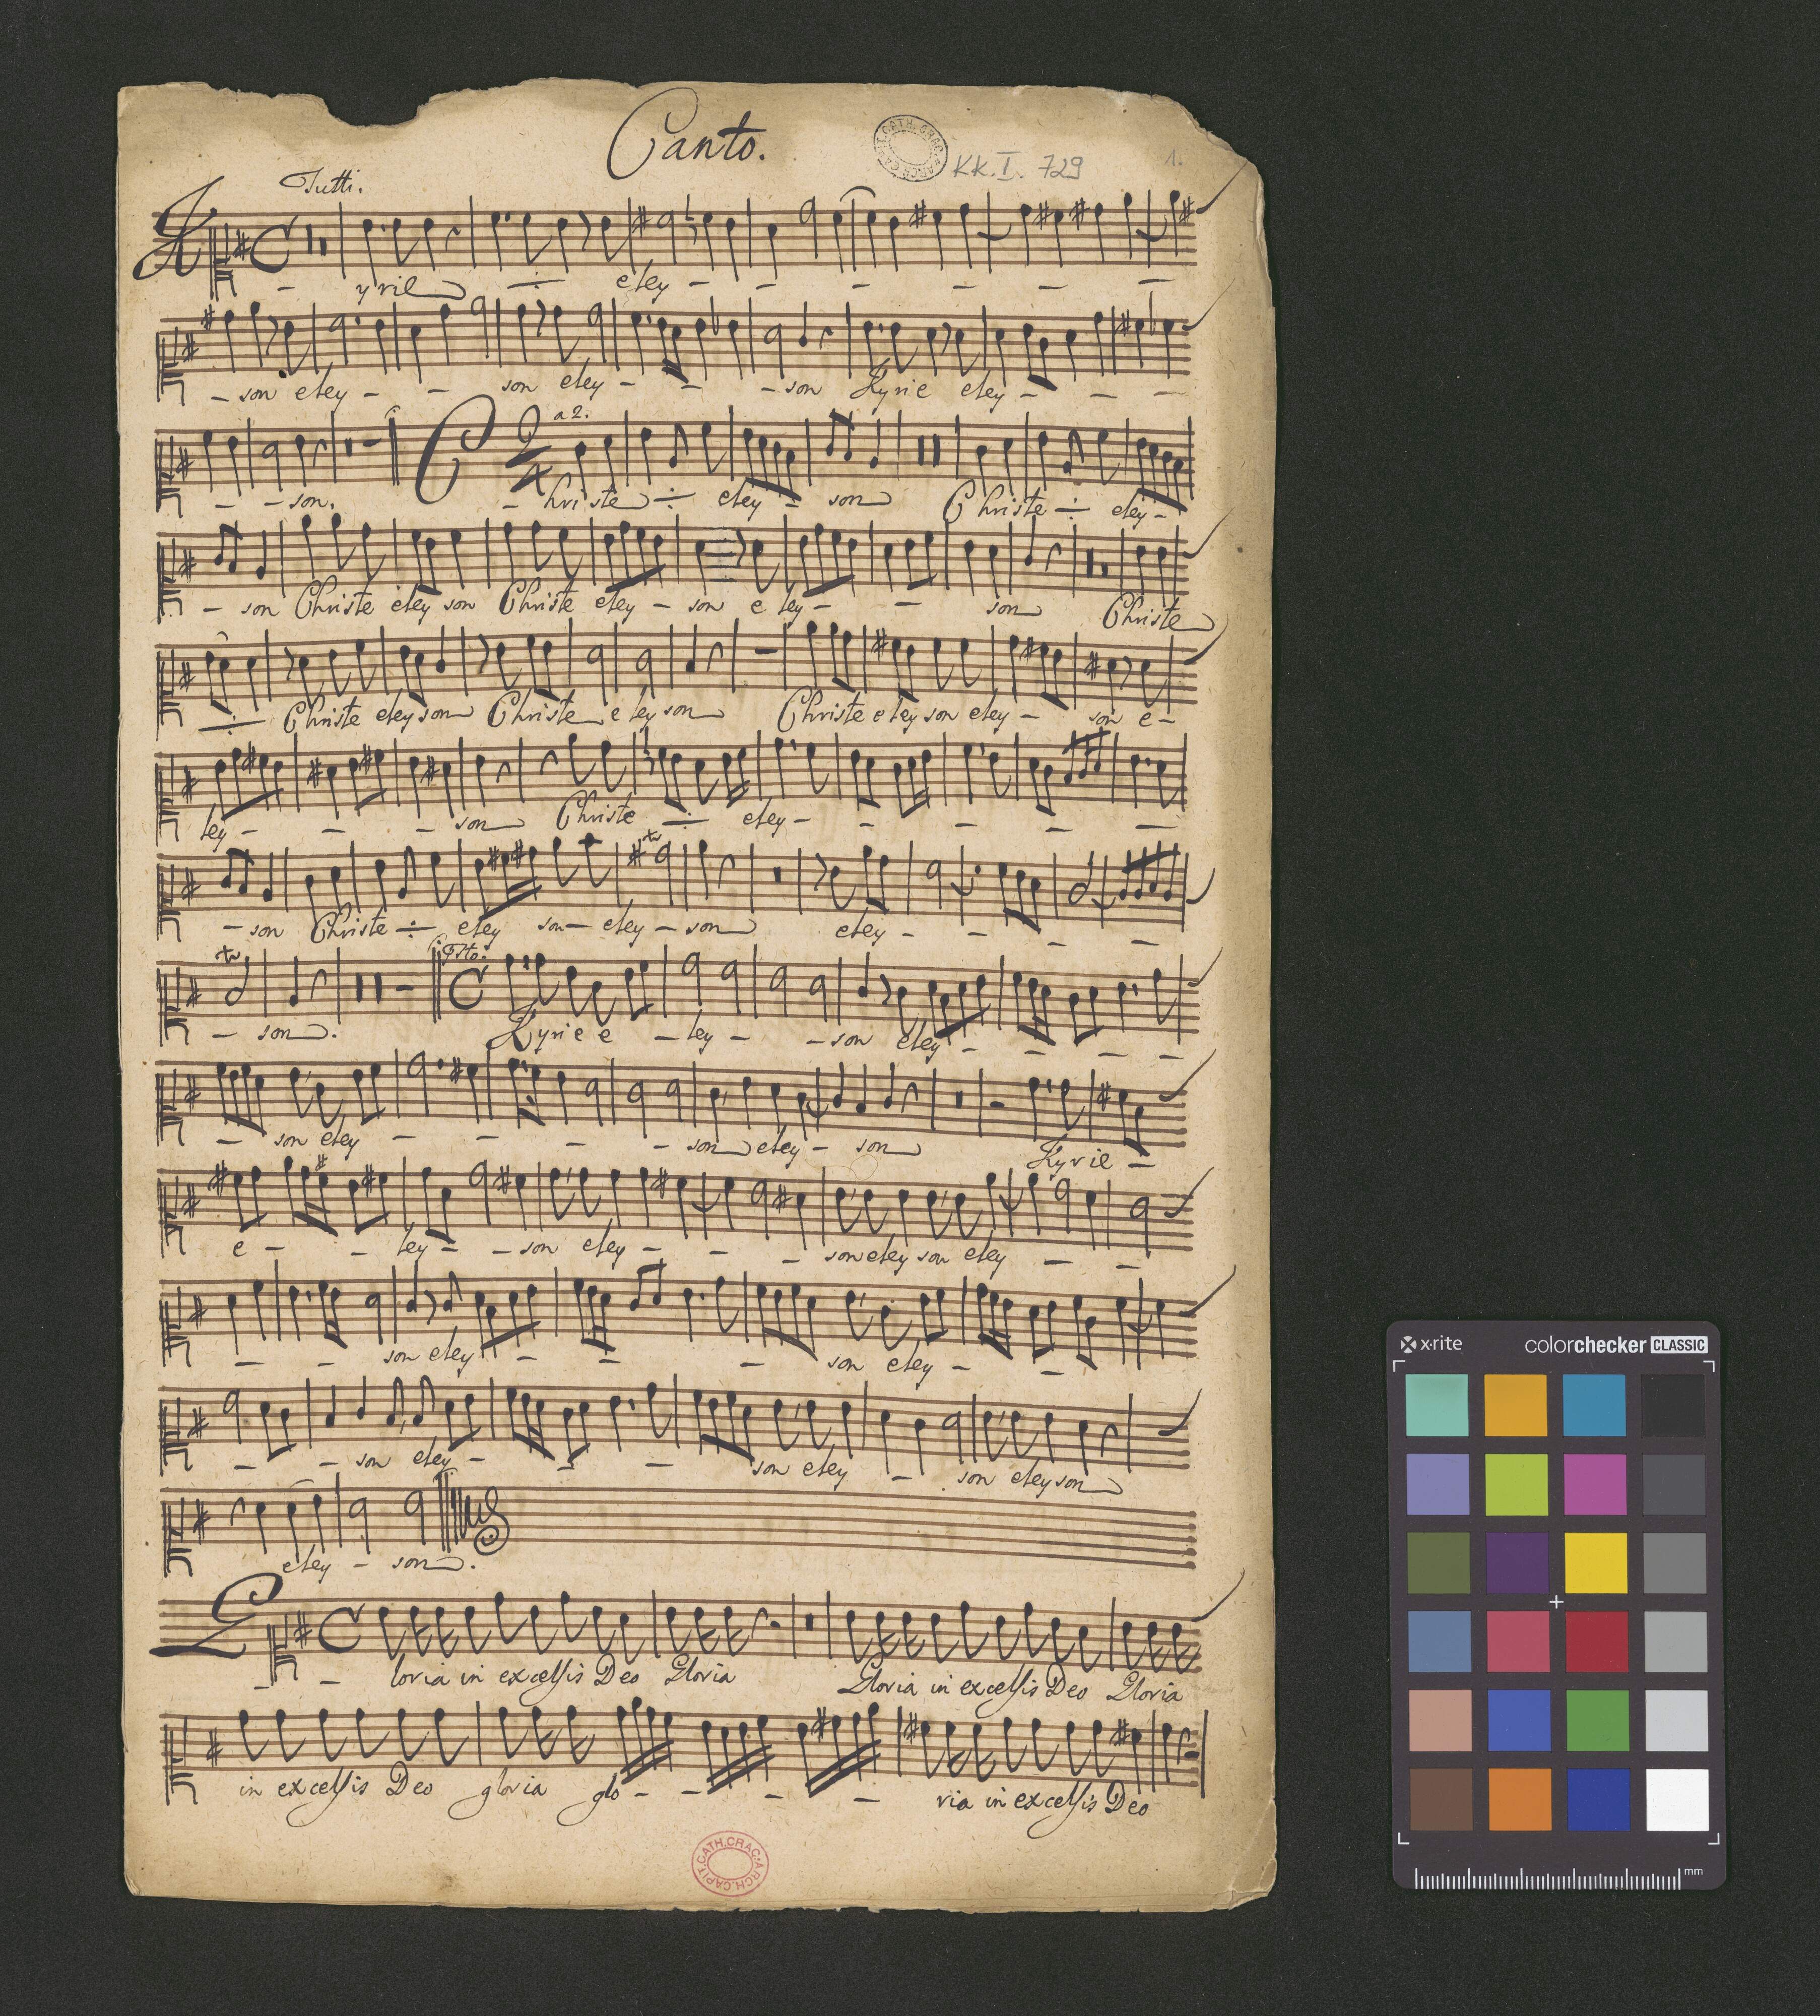 Canto.
ARCH. CAPIT. CATH. CRAC.
KK. I. 729
1.
Tutti.
K - yrie ÷ eley - - - - - -
- son eley - - son eley - - - son Kyrie eley - - -
- - son.
a 2.
2/4
C - hriste ÷ eley - son Christe ÷ eley -
- son Christe eley son Christe eley - son e ley - - son Christe
÷ Christe eley son Christe e ley son Christe e ley son eley - son e -
ley - - - son Christe ÷ eley - - - - -
- son Christe ÷ eley son - eley - son eley - - - -
- son. Kyrie e - ley - - son eley - - - -
- son eley - - - - son eley - son Kyrie -
e - - ley - - son eley - - - son eley son eley - -
- - son eley - - - son eley - -
- - son eley - - - son eley - son eley son
eley - son.
G - loria in excelsis Deo Gloria Gloria in excelsis Deo Gloria
in excelsis Deo gloria glo - - - - ria in excelsis Deo
ARCH. CAPIT. CATH. CRAC.
x-rite colorchecker CLASSIC
mm